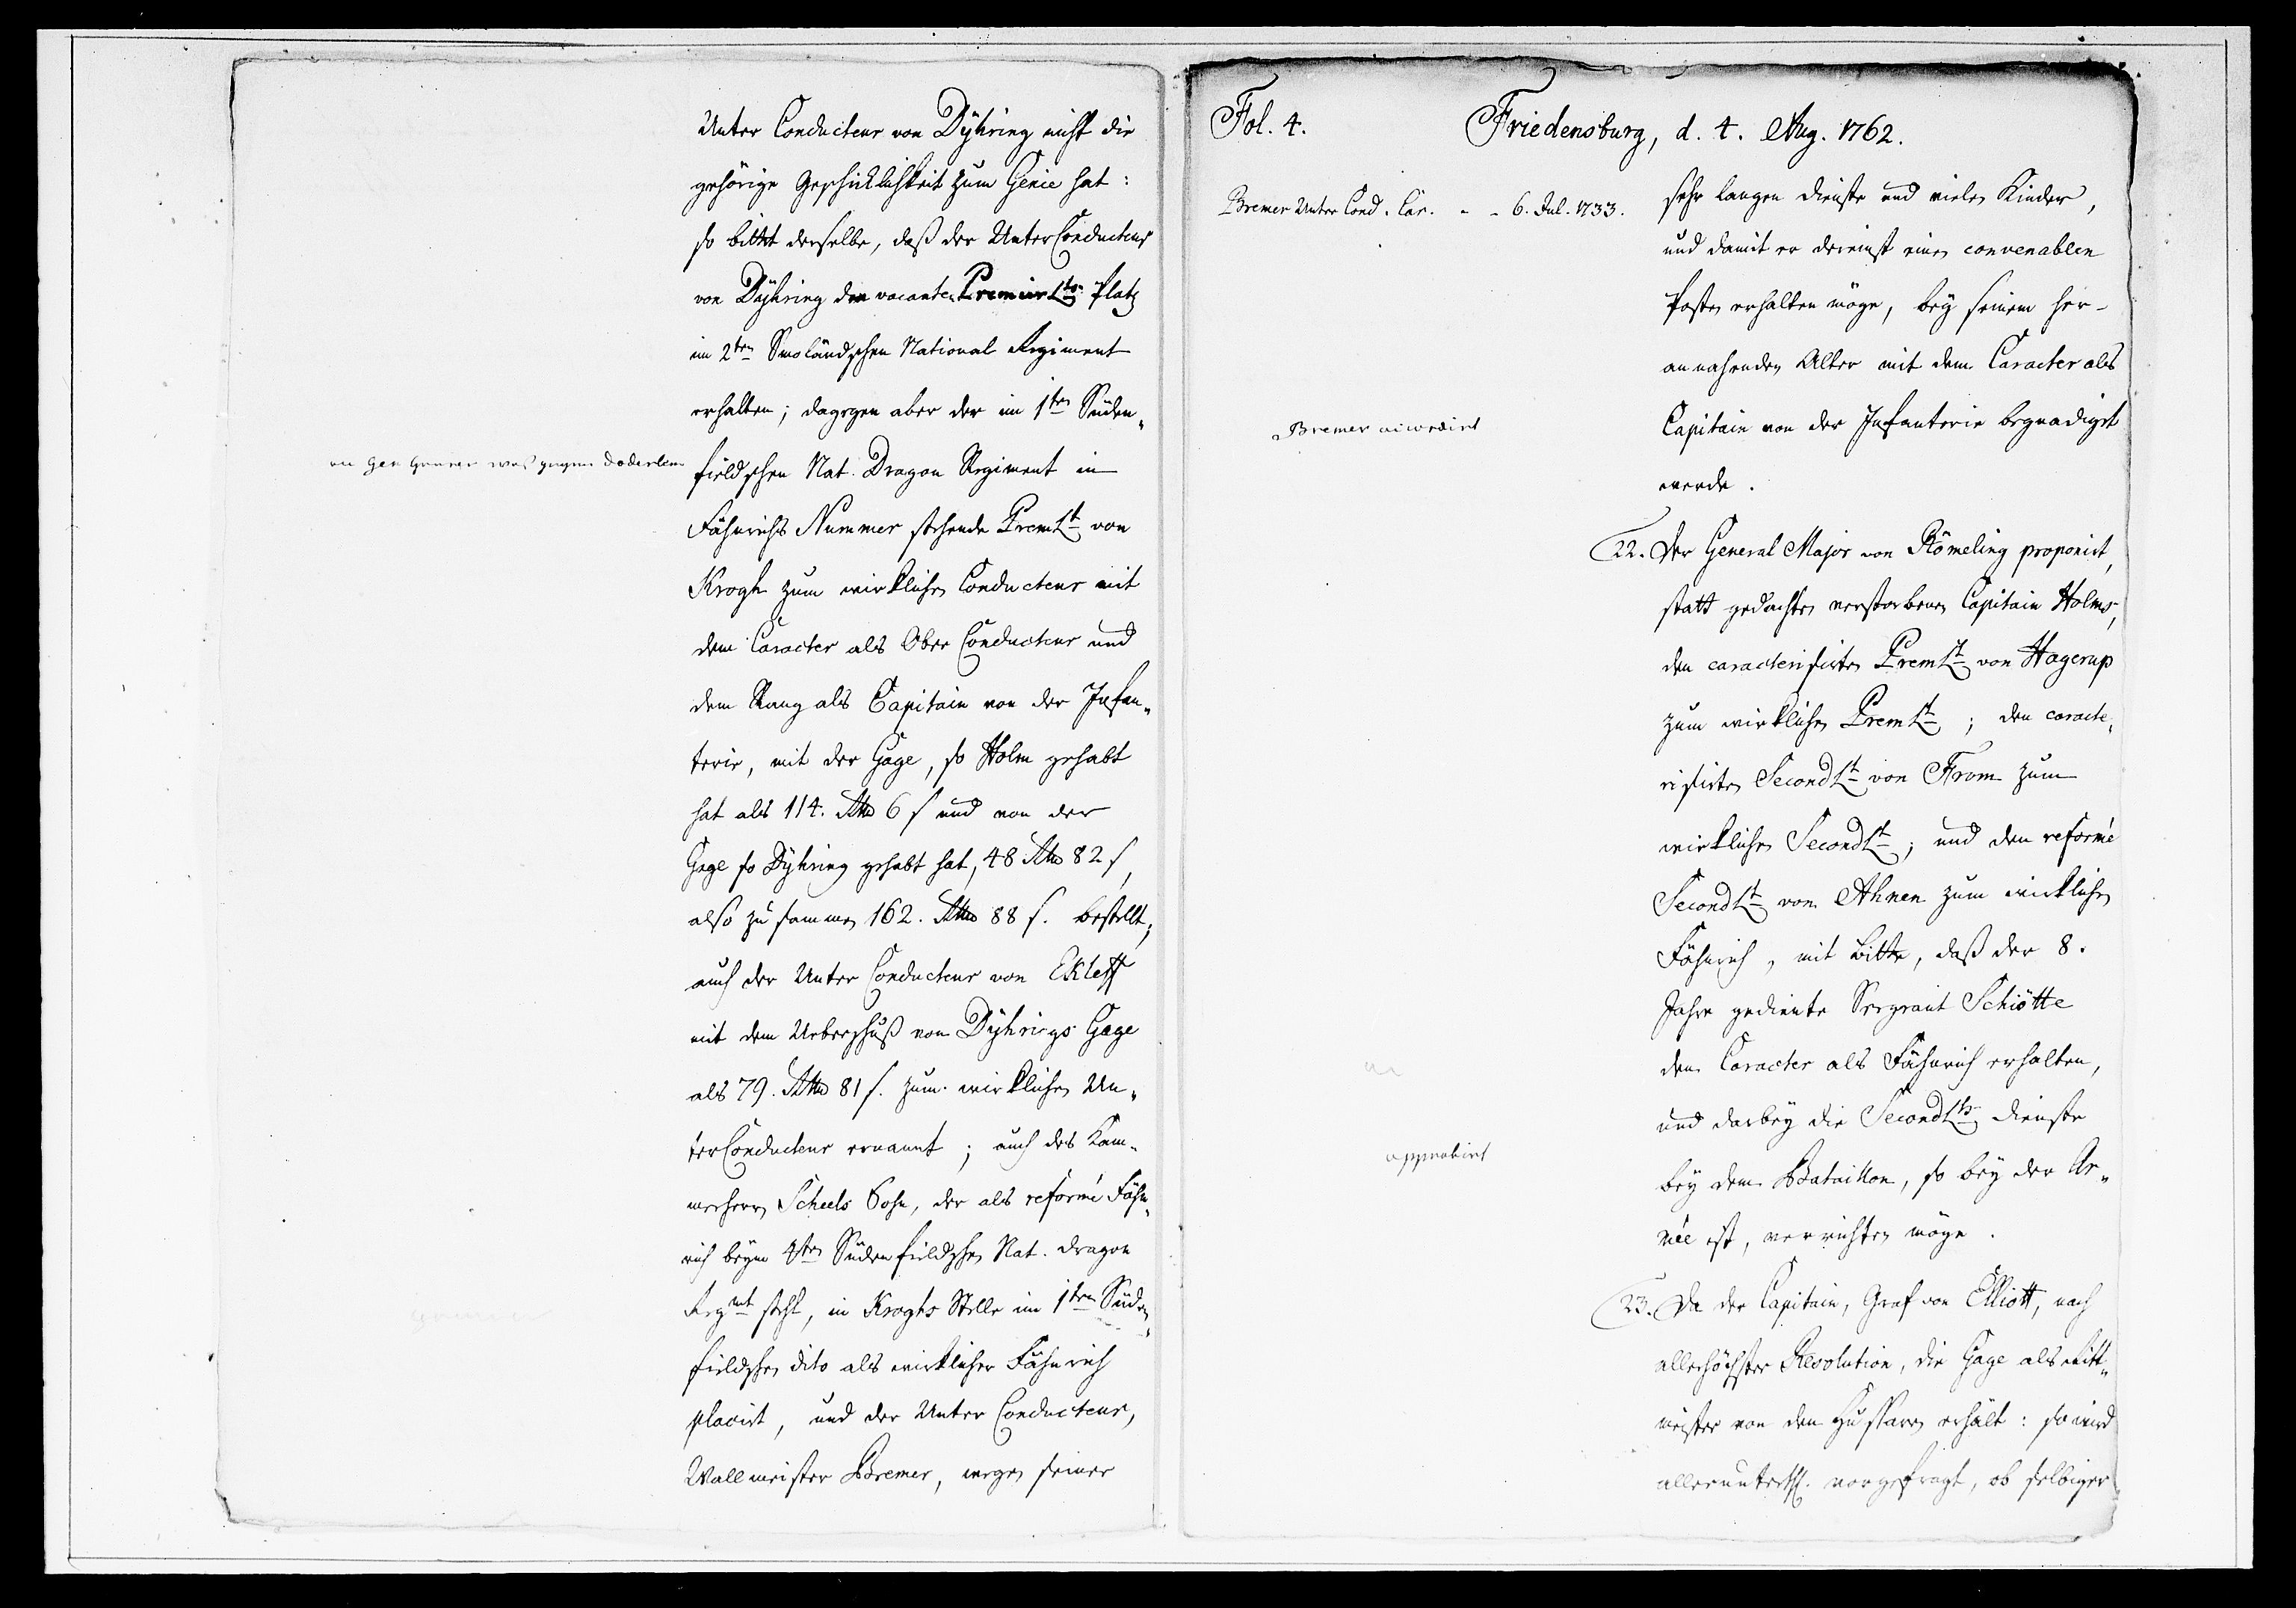 Unter Conducteur von Dÿhring nicht die
gehörige Geschicklichkeit zum Genie hat:
so bittet derselbe, daß der UnterConducteur
von Dÿhring den vacanten PremierLts. Platz
im 2ten Smoländschen National Regiment
erhalten; dagegen aber der im 1ten Süden„
fieldschen Nat. Dragon Regiment in
Fähnrichs Nummer stehende PremLt von
Krogh zum wirklichen Conducteur mit
dem Caracter als Ober Conducteur und
dem Rang als Capitain von der Infan„
terie, mit der Gage, so Holm gehabt
hat als 114. Rthlr 6 s und von der
Gage so Dÿhring gehabt hat, 48 Rthlr 82 s,
also zusammen 162. Rthlr 88 s. bestellt;
auch der Unter Conducteur von Ekleff
mit dem Ueberschuß von Dÿhrings Gage
als 79. Rthlr 81 s. zum wirklichen Un„
terConducteur ernannt; auch des Kam„
merherrn Scheels Sohn, der als reformé Fähn„
rich beym 4ten Südenfieldschen Nat. Dragon
Regmt steht, in Kroghs Stelle im 1ten Süden„
fieldschen dito als wirklicher Fähnrich
placirt, und der Unter Conducteur,
Wallmeister Bremer, wegen seiner
Fol. 4.
Friedensburg, d. 4. Aug. 1762.
Bremer Unter Cond. Car. - - 6. Jul. 1733.
sehr langen Dienste und vielen Kinder,
und damit er dereinst einen convenablen
Posten erhalten möge, bey seinem her-
annahenden Alter mit dem Caracter als
Capitain von der Infanterie begnadiget
werde.
Bremer accordirt
22. Der General Major von Römeling proponirt,
statt gedachten verstorbenen Capitain Holms,
den caracterisirten PremLt von Hagerup
zum wirklichen PremLt; den caracte„
risirten SecondLt von From zum
wirklichen SecondLt; und den reformé
SecondLt von Ahnen zum wirklichen
Fähnrich, mit Bitte, daß der 8.
Jahre gediente Sergeant Schiötte
den Caracter als Fähnrich erhalten,
und darbey die SecondLts Dienste
bey dem Bataillon, so bey der Ar„
mée ist, verrichten möge.
approbirt
23. Da der Capitain, Graf von Elliott, nach
allerhöchster Resolution, die Gage als Ritt„
meister von den Husaren erhält: so wird
alleruntertsh. vorgefragt, ob selbiger